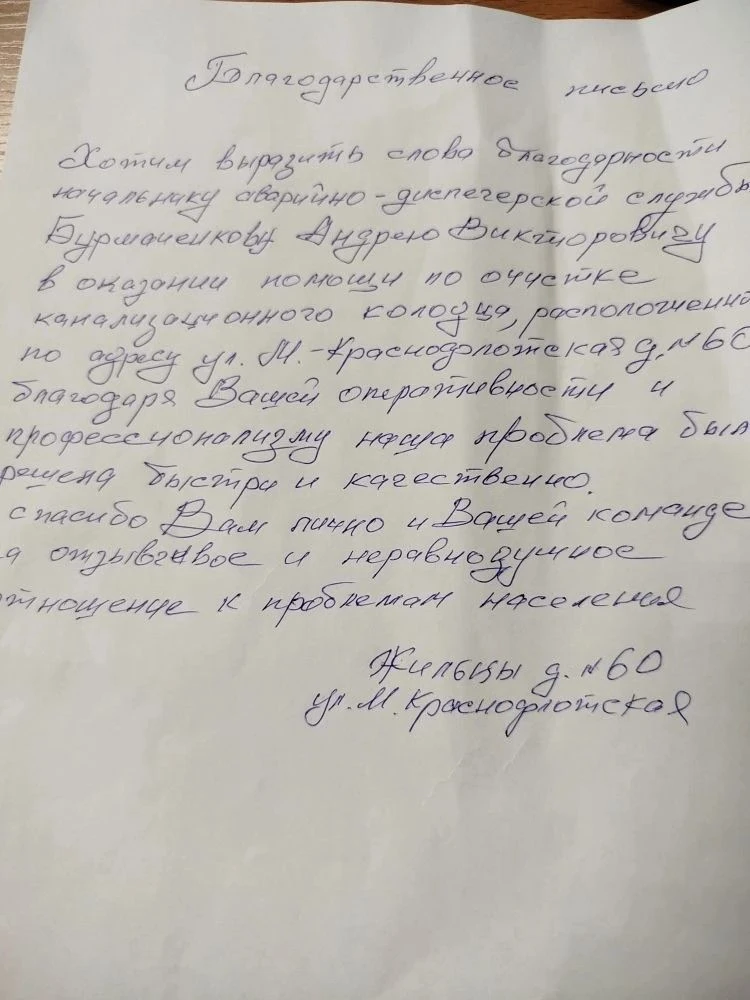 Благодарственное письмо
Хотим выразить слова благодарности
начальнику аварийно-диспечерской службы
Бурмаченкову Андрею Викторовичу
в оказании помощи по очистке
канализационного колодца, расположенно
по адресу ул. М.-Краснофлотская д. №60
благодаря Вашей оперативности и
профессионализму наша проблема был
решена быстро и качественно.
спасибо Вам лично и Вашей команде
а отзывчивое и неравнодушное
отношение к проблемам населения
Жильцы д. №60
ул. М. Краснофлотская